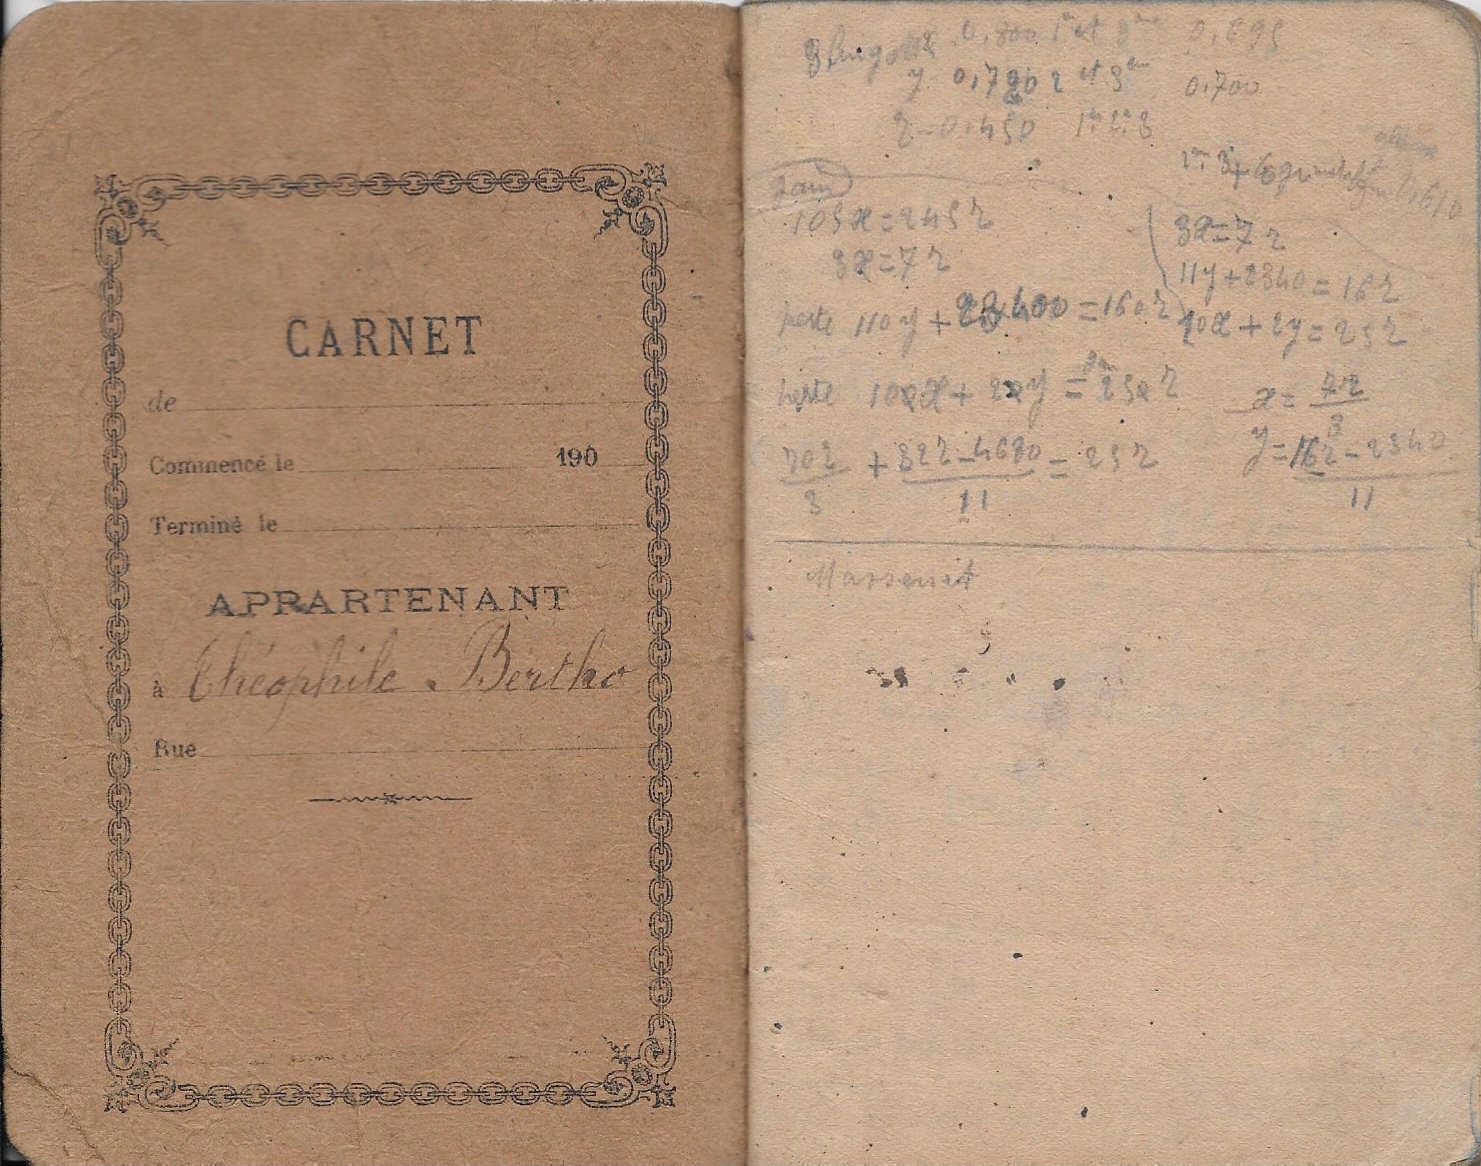 CARNET
de
Commencé le 190
Terminé le
APPARTENANT
à Théophile Bertho
Rue
3 lingots x 0,800 1er et 3ème 0,695
y 0,780 2 et 3em 0,700
z 0,450 1er 2e 3
105x = 245z
3x = 7z
perte 110y + 23400 = 160z
perte 10x + 2y = 25z
70z/3 + 32z - 4680/11 = 25z
3x = 7z
11y + 2340 = 16z
10x + 2y = 25z
x = 7z/3
y = 16z - 2340/11
Massenet